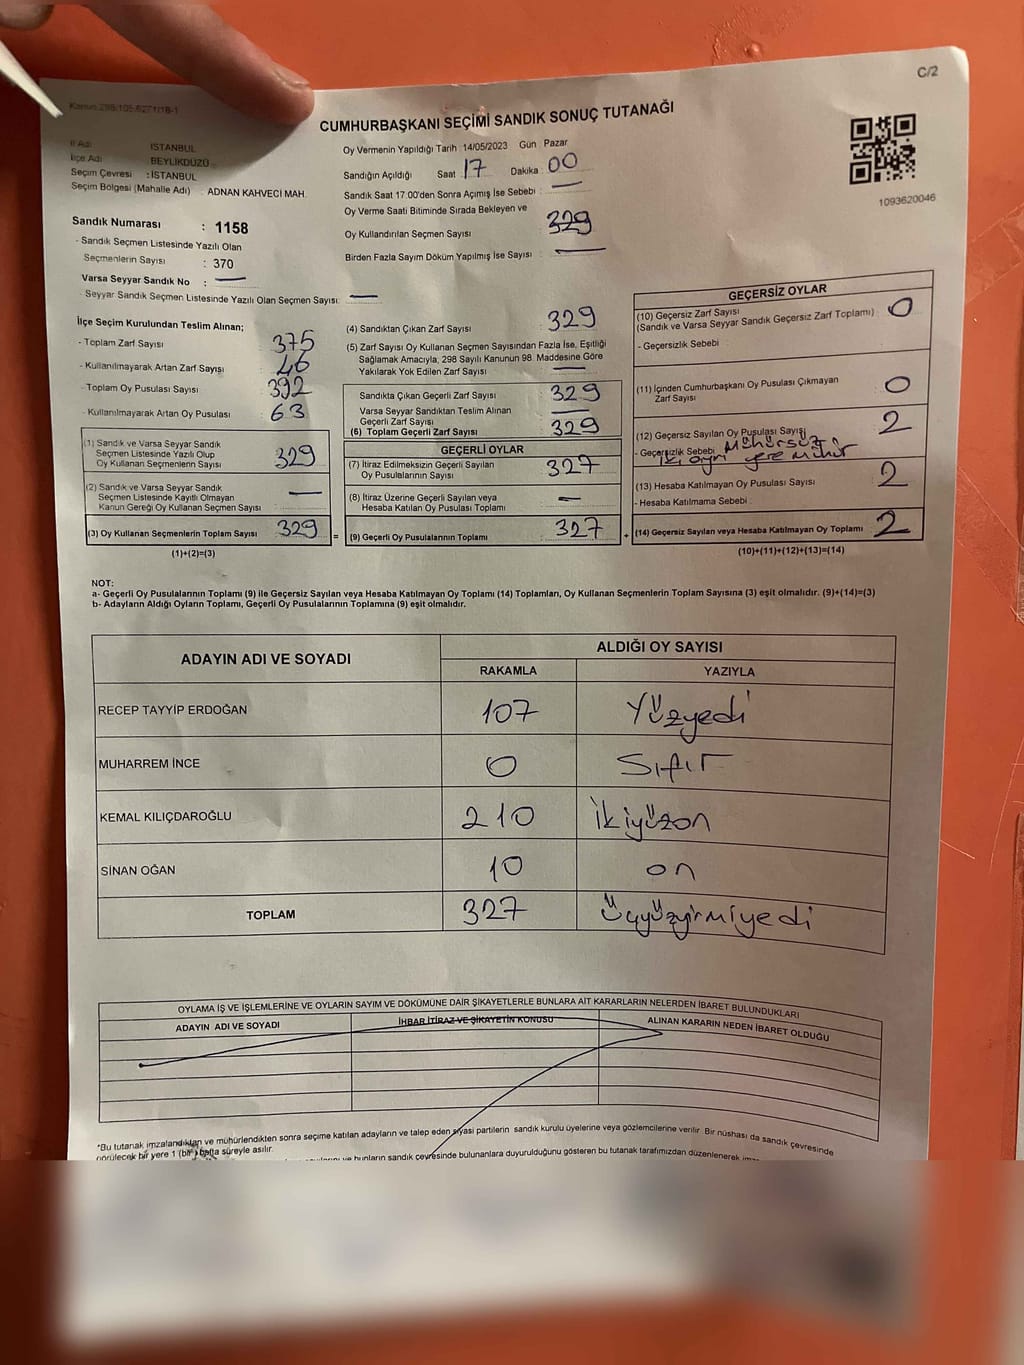 C/2
Kanun:298/105-6271/18-1
CUMHURBAŞKANI SEÇİMİ SANDIK SONUÇ TUTANAĞI
İl Adı İSTANBUL
İlçe Adı BEYLİKDÜZÜ
Seçim Çevresi : İSTANBUL
Seçim Bölgesi (Mahalle Adı) : ADNAN KAHVECİ MAH.
Sandık Numarası : 1158
- Sandık Seçmen Listesinde Yazılı Olan
Seçmenlerin Sayısı : 370
Varsa Seyyar Sandık No : —
- Seyyar Sandık Seçmen Listesinde Yazılı Olan Seçmen Sayısı: —
Oy Vermenin Yapıldığı Tarih 14/05/2023 Gün Pazar
Sandığın Açıldığı Saat 17 Dakika 00
Sandık Saat 17:00'den Sonra Açılmış İse Sebebi : —
Oy Verme Saati Bitiminde Sırada Bekleyen ve
Oy Kullandırılan Seçmen Sayısı 329
Birden Fazla Sayım Döküm Yapılmış İse Sayısı : —
1093620046
İlçe Seçim Kurulundan Teslim Alınan;
- Toplam Zarf Sayısı 375
- Kullanılmayarak Artan Zarf Sayısı 46
- Toplam Oy Pusulası Sayısı 392
- Kullanılmayarak Artan Oy Pusulası 63
(1) Sandık ve Varsa Seyyar Sandık
Seçmen Listesinde Yazılı Olup
Oy Kullanan Seçmenlerin Sayısı 329
(2) Sandık ve Varsa Seyyar Sandık
Seçmen Listesinde Kayıtlı Olmayan
Kanun Gereği Oy Kullanan Seçmen Sayısı —
(3) Oy Kullanan Seçmenlerin Toplam Sayısı 329
(1)+(2)=(3)
(4) Sandıktan Çıkan Zarf Sayısı : 329
(5) Zarf Sayısı Oy Kullanan Seçmen Sayısından Fazla İse, Eşitliği
Sağlamak Amacıyla, 298 Sayılı Kanunun 98. Maddesine Göre
Yakılarak Yok Edilen Zarf Sayısı —
Sandıkta Çıkan Geçerli Zarf Sayısı : 329
Varsa Seyyar Sandıktan Teslim Alınan
Geçerli Zarf Sayısı —
(6) Toplam Geçerli Zarf Sayısı : 329
GEÇERLİ OYLAR
(7) İtiraz Edilmeksizin Geçerli Sayılan
Oy Pusulalarının Sayısı 327
(8) İtiraz Üzerine Geçerli Sayılan veya
Hesaba Katılan Oy Pusulası Toplamı —
= (9) Geçerli Oy Pusulalarının Toplamı 327 +
GEÇERSİZ OYLAR
(10) Geçersiz Zarf Sayısı
(Sandık ve Varsa Seyyar Sandık Geçersiz Zarf Toplamı) : 0
- Geçersizlik Sebebi
(11) İçinden Cumhurbaşkanı Oy Pusulası Çıkmayan
Zarf Sayısı 0
(12) Geçersiz Sayılan Oy Pusulası Sayısı 2
- Geçersizlik Sebebi Mühürsüz
iki ayrı yere mühür
(13) Hesaba Katılmayan Oy Pusulası Sayısı 2
- Hesaba Katılmama Sebebi :
(14) Geçersiz Sayılan veya Hesaba Katılmayan Oy Toplamı 2
(10)+(11)+(12)+(13)=(14)
NOT:
a- Geçerli Oy Pusulalarının Toplamı (9) ile Geçersiz Sayılan veya Hesaba Katılmayan Oy Toplamı (14) Toplamları, Oy Kullanan Seçmenlerin Toplam Sayısına (3) eşit olmalıdır. (9)+(14)=(3)
b- Adayların Aldığı Oyların Toplamı, Geçerli Oy Pusulalarının Toplamına (9) eşit olmalıdır.
ADAYIN ADI VE SOYADI ALDIĞI OY SAYISI
RAKAMLA YAZIYLA
RECEP TAYYİP ERDOĞAN 107 Yüzyedi
MUHARREM İNCE 0 Sıfır
KEMAL KILIÇDAROĞLU 210 ikiyüzon
SİNAN OĞAN 10 on
TOPLAM 327 üçyüzyirmiyedi
OYLAMA İŞ VE İŞLEMLERİNE VE OYLARIN SAYIM VE DÖKÜMÜNE DAİR ŞİKAYETLERLE BUNLARA AİT KARARLARIN NELERDEN İBARET BULUNDUKLARI
ADAYIN ADI VE SOYADI İHBAR İTİRAZ VE ŞİKAYETİN KONUSU ALINAN KARARIN NEDEN İBARET OLDUĞU
*Bu tutanak imzalandıktan ve mühürlendikten sonra seçime katılan adayların ve talep eden siyasi partilerin sandık kurulu üyelerine veya gözlemcilerine verilir. Bir nüshası da sandık çevresinde
görülecek bir yere 1 (bir) hafta süreyle asılır.
ve bunların sandık çevresinde bulunanlara duyurulduğunu gösteren bu tutanak tarafımızdan düzenlenerek